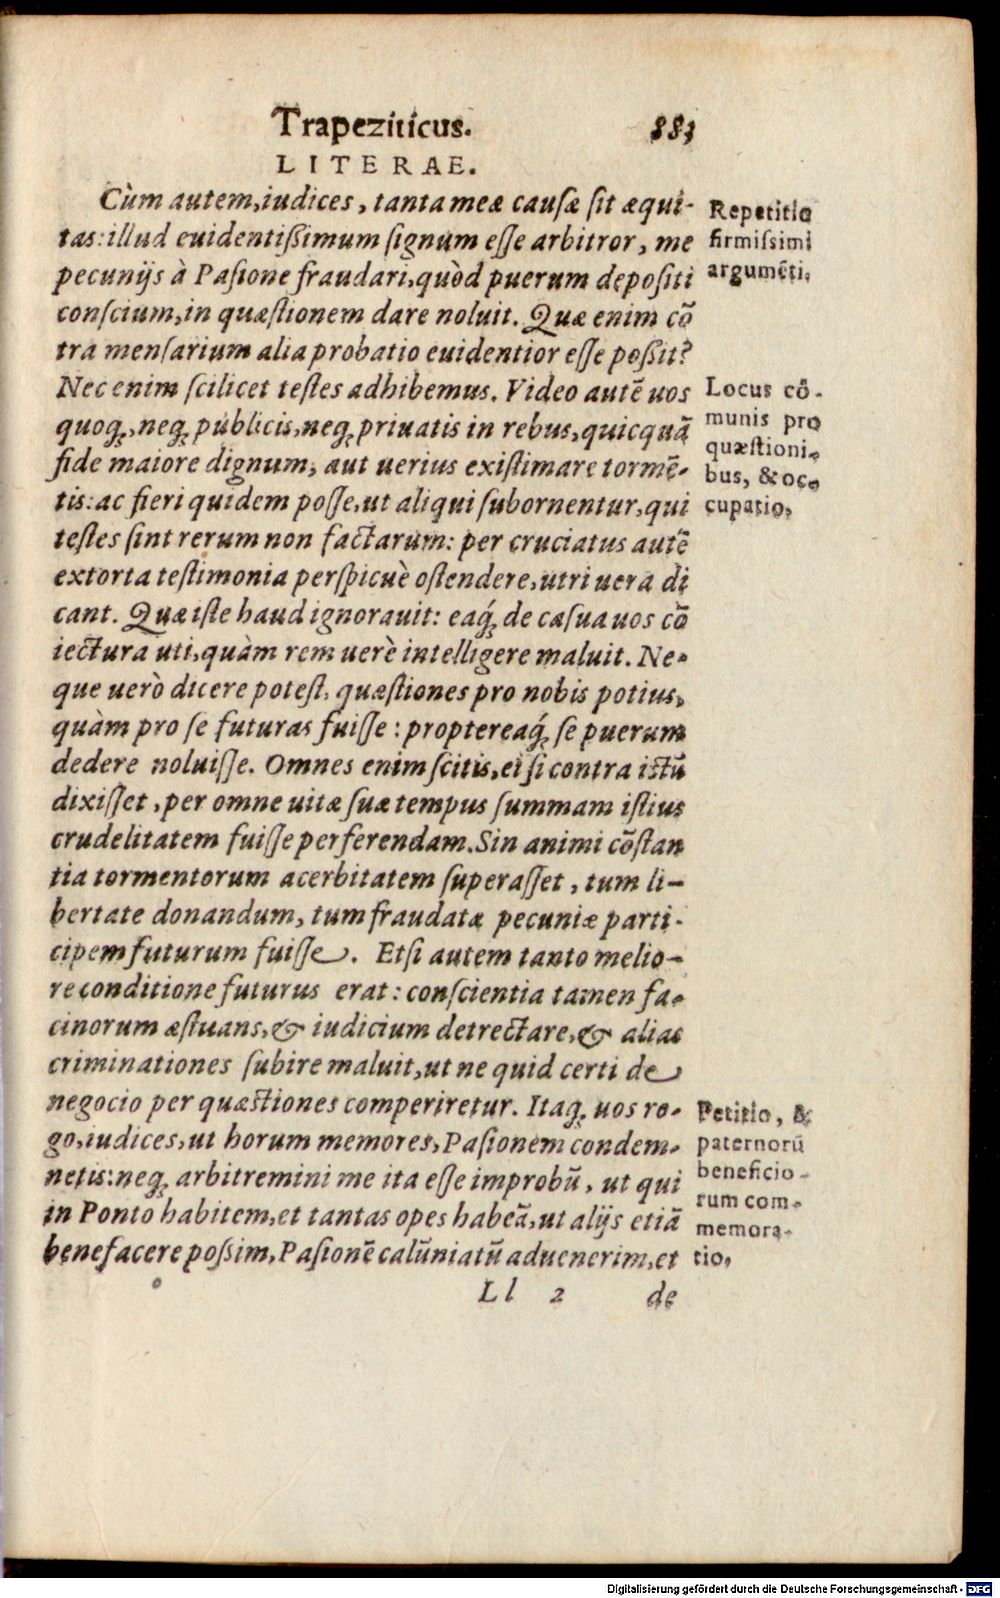 Trapeziticus. 883
LITERAE.
Cùm autem, iudices, tanta meæ causæ sit æqui-
tas: illud euidentißimum signum esse arbitror, me
pecunijs à Pasione fraudari, quòd puerum depositi
conscium, in quæstionem dare noluit. Quæ enim cõ
tra mensarium alia probatio euidentior esse poßit?
Nec enim scilicet testes adhibemus. Video autẽ uos
quoq;, neq; publicis, neq; priuatis in rebus, quicquã
fide maiore dignum, aut uerius existimare tormẽ-
tis: ac fieri quidem posse, ut aliqui subornentur, qui
testes sint rerum non factarum: per cruciatus autẽ
extorta testimonia perspicuè ostendere, utri uera di
cant. Quæ iste haud ignorauit: eaq́; de causa uos cõ
iectura uti, quàm rem uerè intelligere maluit. Ne-
que uerò dicere potest, quæstiones pro nobis potius,
quàm pro se futuras fuisse: proptereaq́; se puerum
dedere noluisse. Omnes enim scitis, ei si contra istũ
dixisset, per omne uitæ suæ tempus summam istius
crudelitatem fuisse perferendam. Sin animi cõstan
tia tormentorum acerbitatem superasset, tum li-
bertate donandum, tum fraudatæ pecuniæ parti-
cipem futurum fuisse. Etsi autem tanto melio-
re conditione futurus erat: conscientia tamen fa-
cinorum æstuans, & iudicium detrectare, & alias
criminationes subire maluit, ut ne quid certi de
negocio per quæstiones comperiretur. Itaq; uos ro-
go, iudices, ut horum memores, Pasionem condem-
netis: neq; arbitremini me ita esse improbũ, ut qui
in Ponto habitem, et tantas opes habeã, ut alijs etiã
benefacere possim, Pasionẽ calũniatũ aduenerim, et
Ll 2 de
Repetitio
firmissimi
argumẽti,
Locus cõ-
munis pro
quæstioni-
bus, & oc-
cupatio,
Petitio, &
paternorũ
beneficio-
rum com-
memora-
tio,
Digitalisierung gefördert durch die Deutsche Forschungsgemeinschaft - DFG